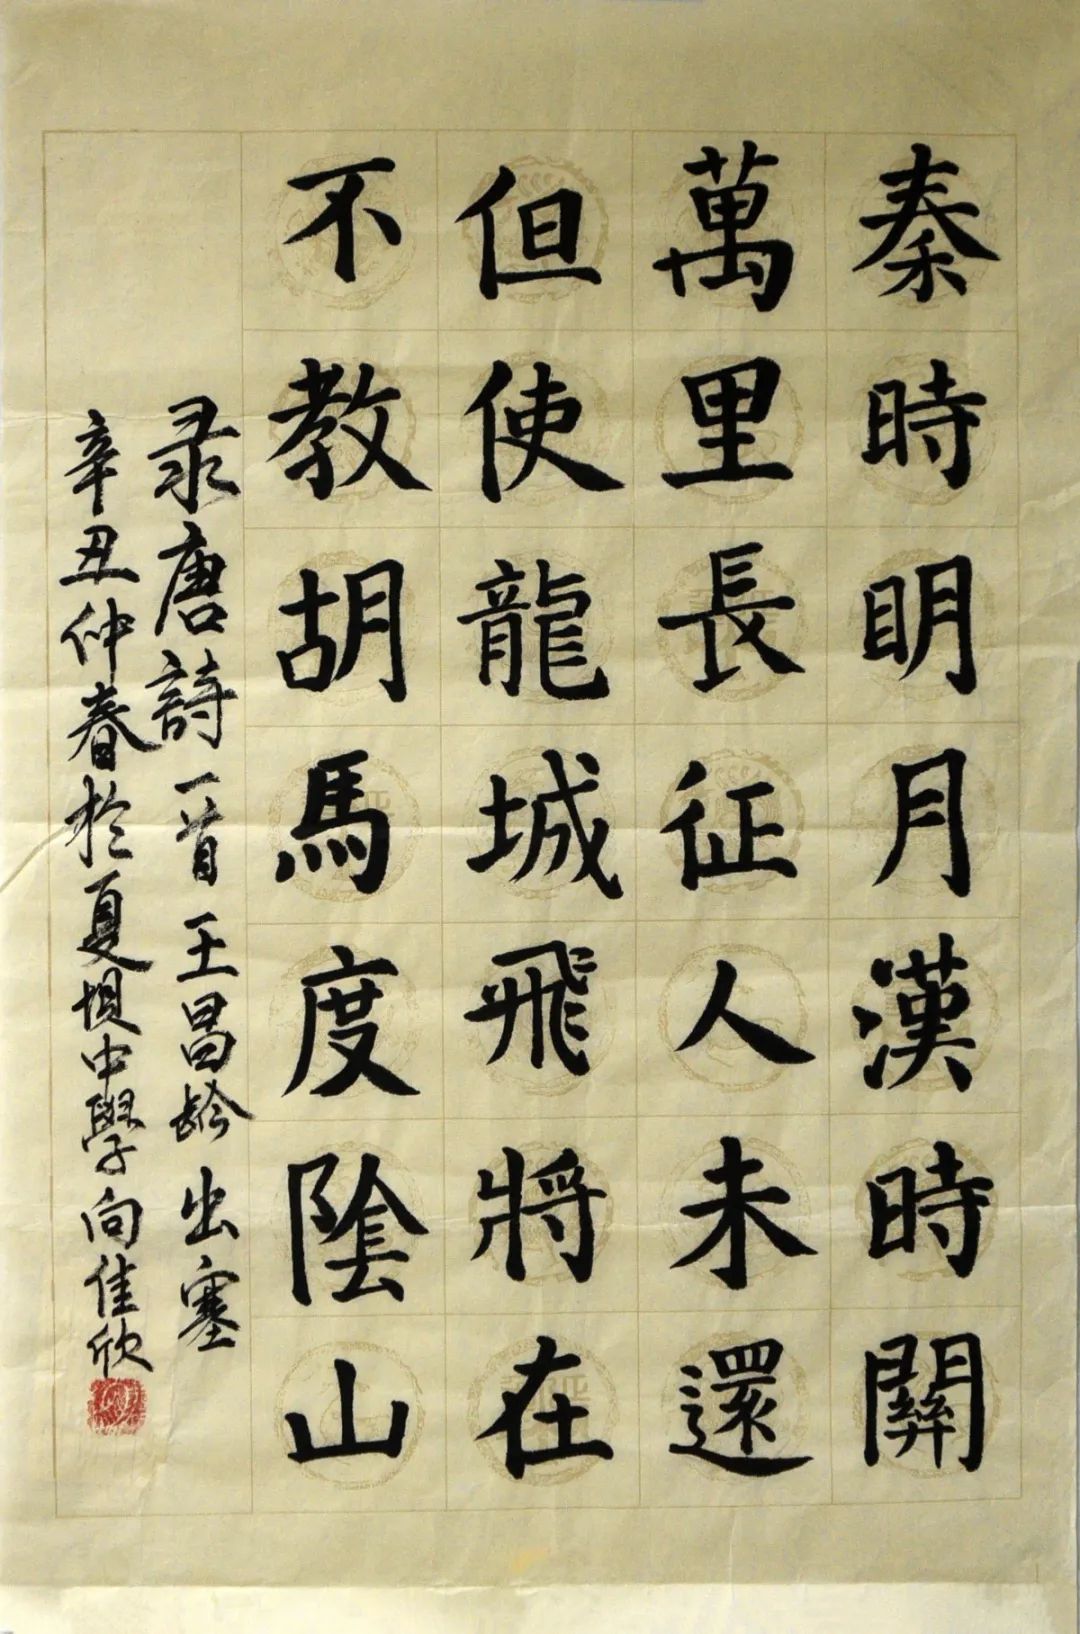 秦時明月漢時關
萬里長征人未還
但使龍城飛將在
不教胡馬度陰山
录唐詩一首王昌龄出塞
辛丑仲春於夏坝中學向佳欣